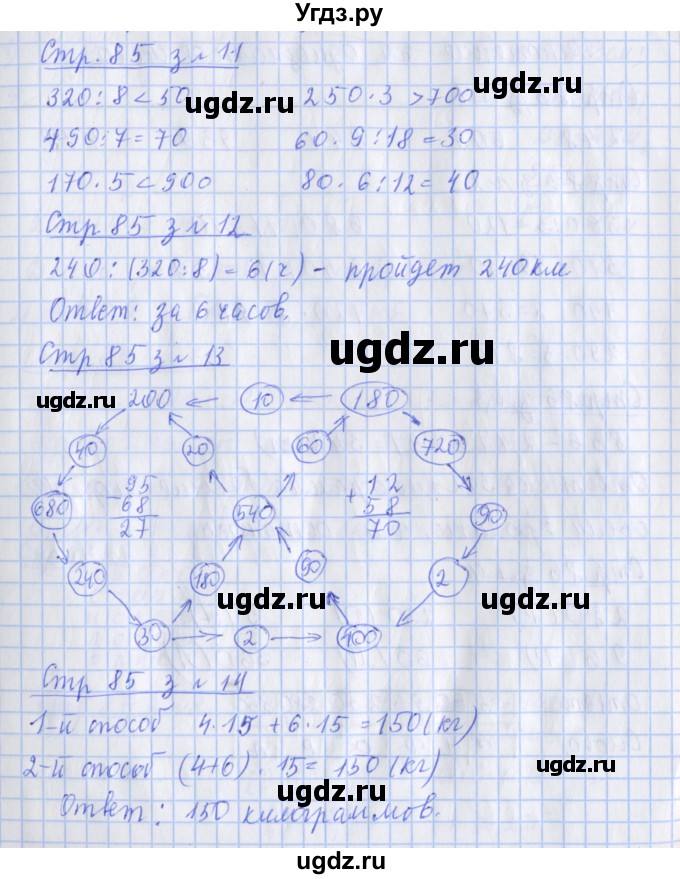 Угдз.ру
Стр. 85 з № 11
320 : 8 < 50 250 · 3 > 700
ugdz.ru ugdz.ru
490 : 7 = 70 60 · 9 : 18 = 30
170 · 5 < 900 80 · 6 : 12 = 40
ugdz.ru
Стр 85 з № 12
240 : (320 : 8) = 6 (ч) - пройдет 240 км
Ответ: за 6 часов.
Стр 85 з № 13
ugdz.ru
ugdz.ru
200 ← 10 ← 180
40 20 60 720
680 540 90
95 - 68 27
12 + 58 70
240 180 90 2
ugdz.ru ugdz.ru
30 → 2 → 400
Стр 85 з № 14
1-й способ 4 · 15 + 6 · 15 = 150 (кг)
ugdz.ru
2-й способ (4+6) · 15 = 150 (кг)
ugdz.ru ugdz.ru
Ответ: 150 килограммов.
ugdz.ru